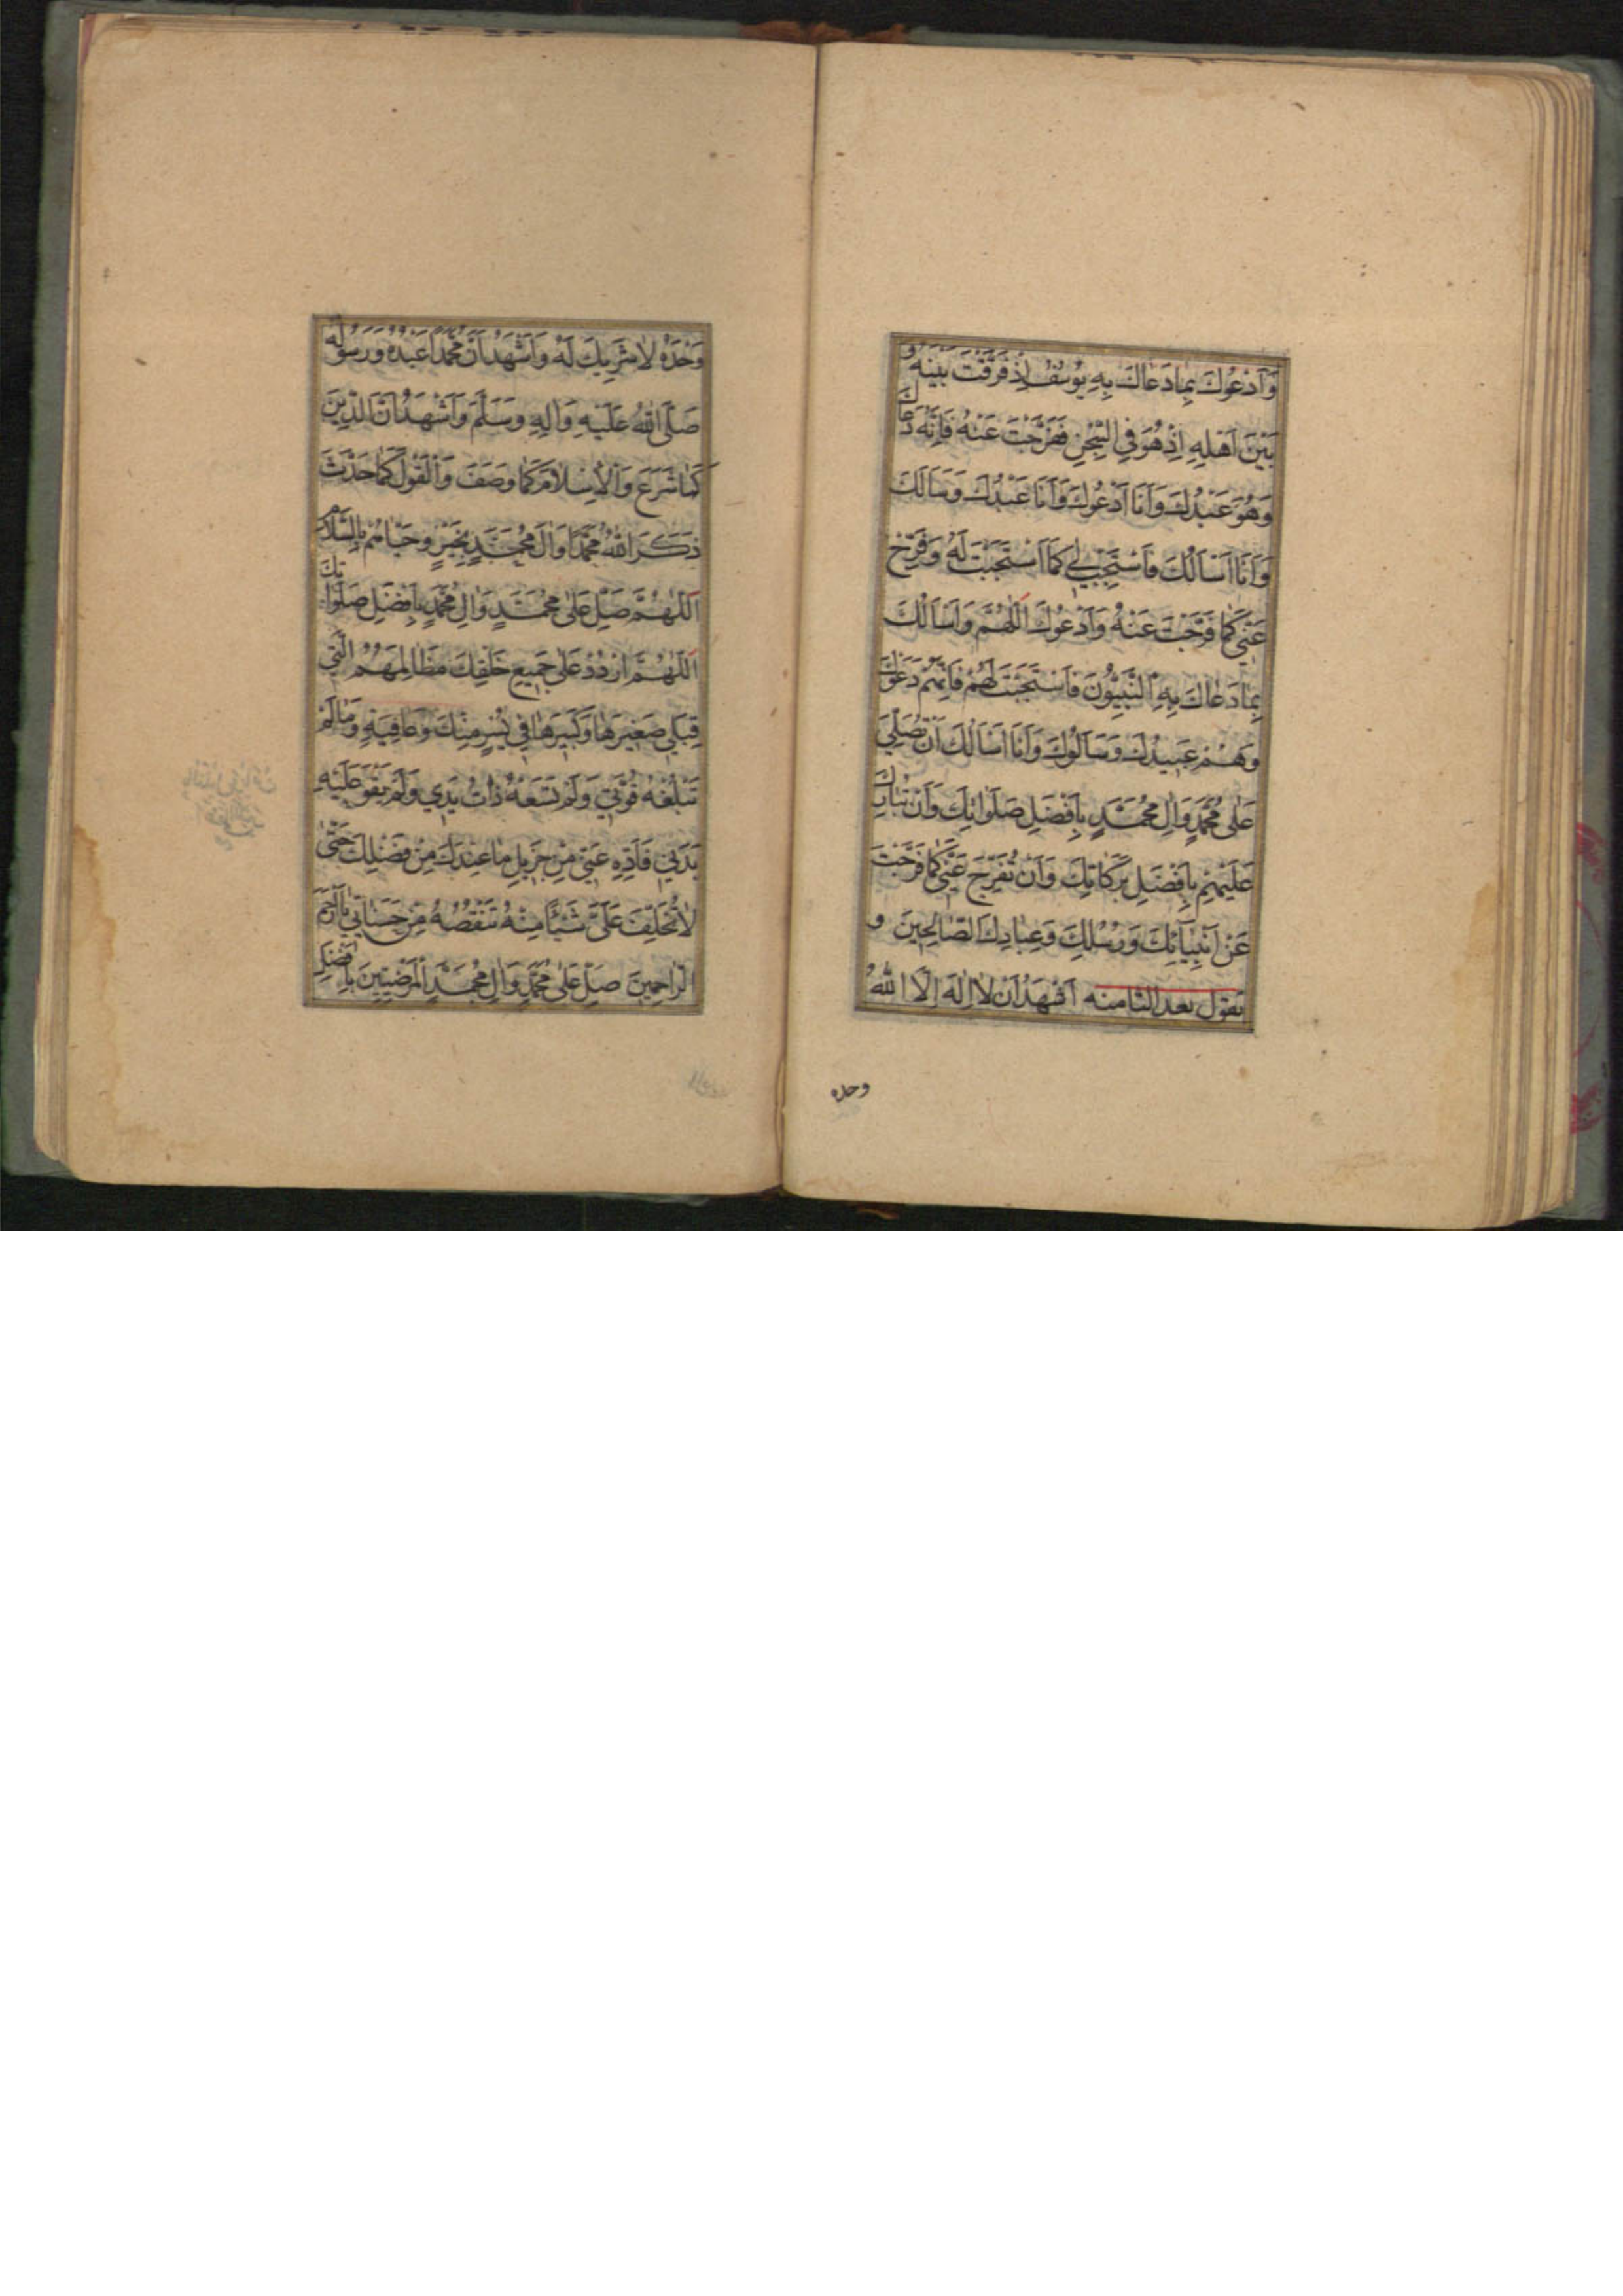 وَاَدْعُوكَ بِمٰا دَعٰاكَ بِهِ يُوسُفُ اِذْ فَرَّقْتَ بَيْنَهُ وَ
بَيْنَ اَهْلِهِ اِذْ هُوَ فِي السِّجْنِ فَفَرَّجْتَ عَنْهُ فَاِنَّهُ دَعٰاكَ
وَهُوَ عَبْدُكَ وَاَنَا اَدْعُوكَ وَاَنَا عَبْدُكَ وَسَاَلَكَ
وَاَنَا اَسْاَلُكَ فَاسْتَجِبْ لِي كَمَا اسْتَجَبْتَ لَهُ وَفَرِّجْ
عَنِّي كَمٰا فَرَّجْتَ عَنْهُ وَاَدْعُوكَ اَللّٰهُمَّ وَاَسْاَلُكَ
بِمٰا دَعٰاكَ بِهِ النَّبِيُّونَ فَاسْتَجَبْتَ لَهُمْ فَاِنَّهُمْ دَعَوْكَ
وَهُمْ عَبِيدُكَ وَسَاَلُوكَ وَاَنَا اَسْاَلُكَ اَنْ تُصَلِّيَ
عَلٰى مُحَمَّدٍ وَاٰلِ مُحَمَّدٍ بِاَفْضَلِ صَلَوٰاتِكَ وَاَنْ تُبٰارِكَ
عَلَيْهِمْ بِاَفْضَلِ بَرَكٰاتِكَ وَاَنْ تُفَرِّجَ عَنِّي كَمٰا فَرَّجْتَ
عَنْ اَنْبِيٰآئِكَ وَرُسُلِكَ وَعِبٰادِكَ الصّٰالِحِينَ و
تقول بعد الثامنه اَشْهَدُ اَنْ لاٰ اِلٰهَ اِلَّا اللّٰهُ
وحده
وَحْدَهُ لاٰ شَرِيكَ لَهُ وَاَشْهَدُ اَنَّ مُحَمَّداً عَبْدُهُ وَرَسُولُهُ
صَلَّى اللّٰهُ عَلَيْهِ وَاٰلِهِ وَسَلَّمَ وَاَشْهَدُ اَنَّ الدِّينَ
كَمٰا شَرَعَ وَالْاِسْلاٰمَ كَمٰا وَصَفَ وَالْقَوْلَ كَمٰا حَدَّثَ
ذَكَرَ اللّٰهُ مُحَمَّداً وَاٰلَ مُحَمَّدٍ بِخَيْرٍ وَحَيّٰاهُمْ بِالسَّلاٰمِ
اَللّٰهُمَّ صَلِّ عَلٰى مُحَمَّدٍ وَاٰلِ مُحَمَّدٍ بِاَفْضَلِ صَلَوٰاتِكَ
اَللّٰهُمَّ ارْدُدْ عَلٰى جَمِيعِ خَلْقِكَ مَظٰالِمَهُمُ الَّتِي
قِبَلِي صَغِيرَهٰا وَكَبِيرَهٰا فِي يُسْرٍ مِنْكَ وَعٰافِيَةٍ وَمٰا لَمْ
تَبْلُغْهُ قُوَّتِي وَلَمْ تَسَعْهُ ذٰاتُ يَدِي وَلَمْ يَقْوَ عَلَيْهِ
بَدَنِي فَاَدِّهِ عَنِّي مِنْ جَزِيلِ مٰا عِنْدَكَ مِنْ فَضْلِكَ حَتّٰى
لاٰ تُخَلِّفَ عَلَيَّ شَيْئًا مِنْهُ تَنْقُصُهُ مِنْ حَسَنٰاتِي يٰا اَرْحَمَ
الرّٰاحِمِينَ صَلِّ عَلٰى مُحَمَّدٍ وَاٰلِ مُحَمَّدٍ الْمَرْضِيِّينَ بِاَفْضَلِ